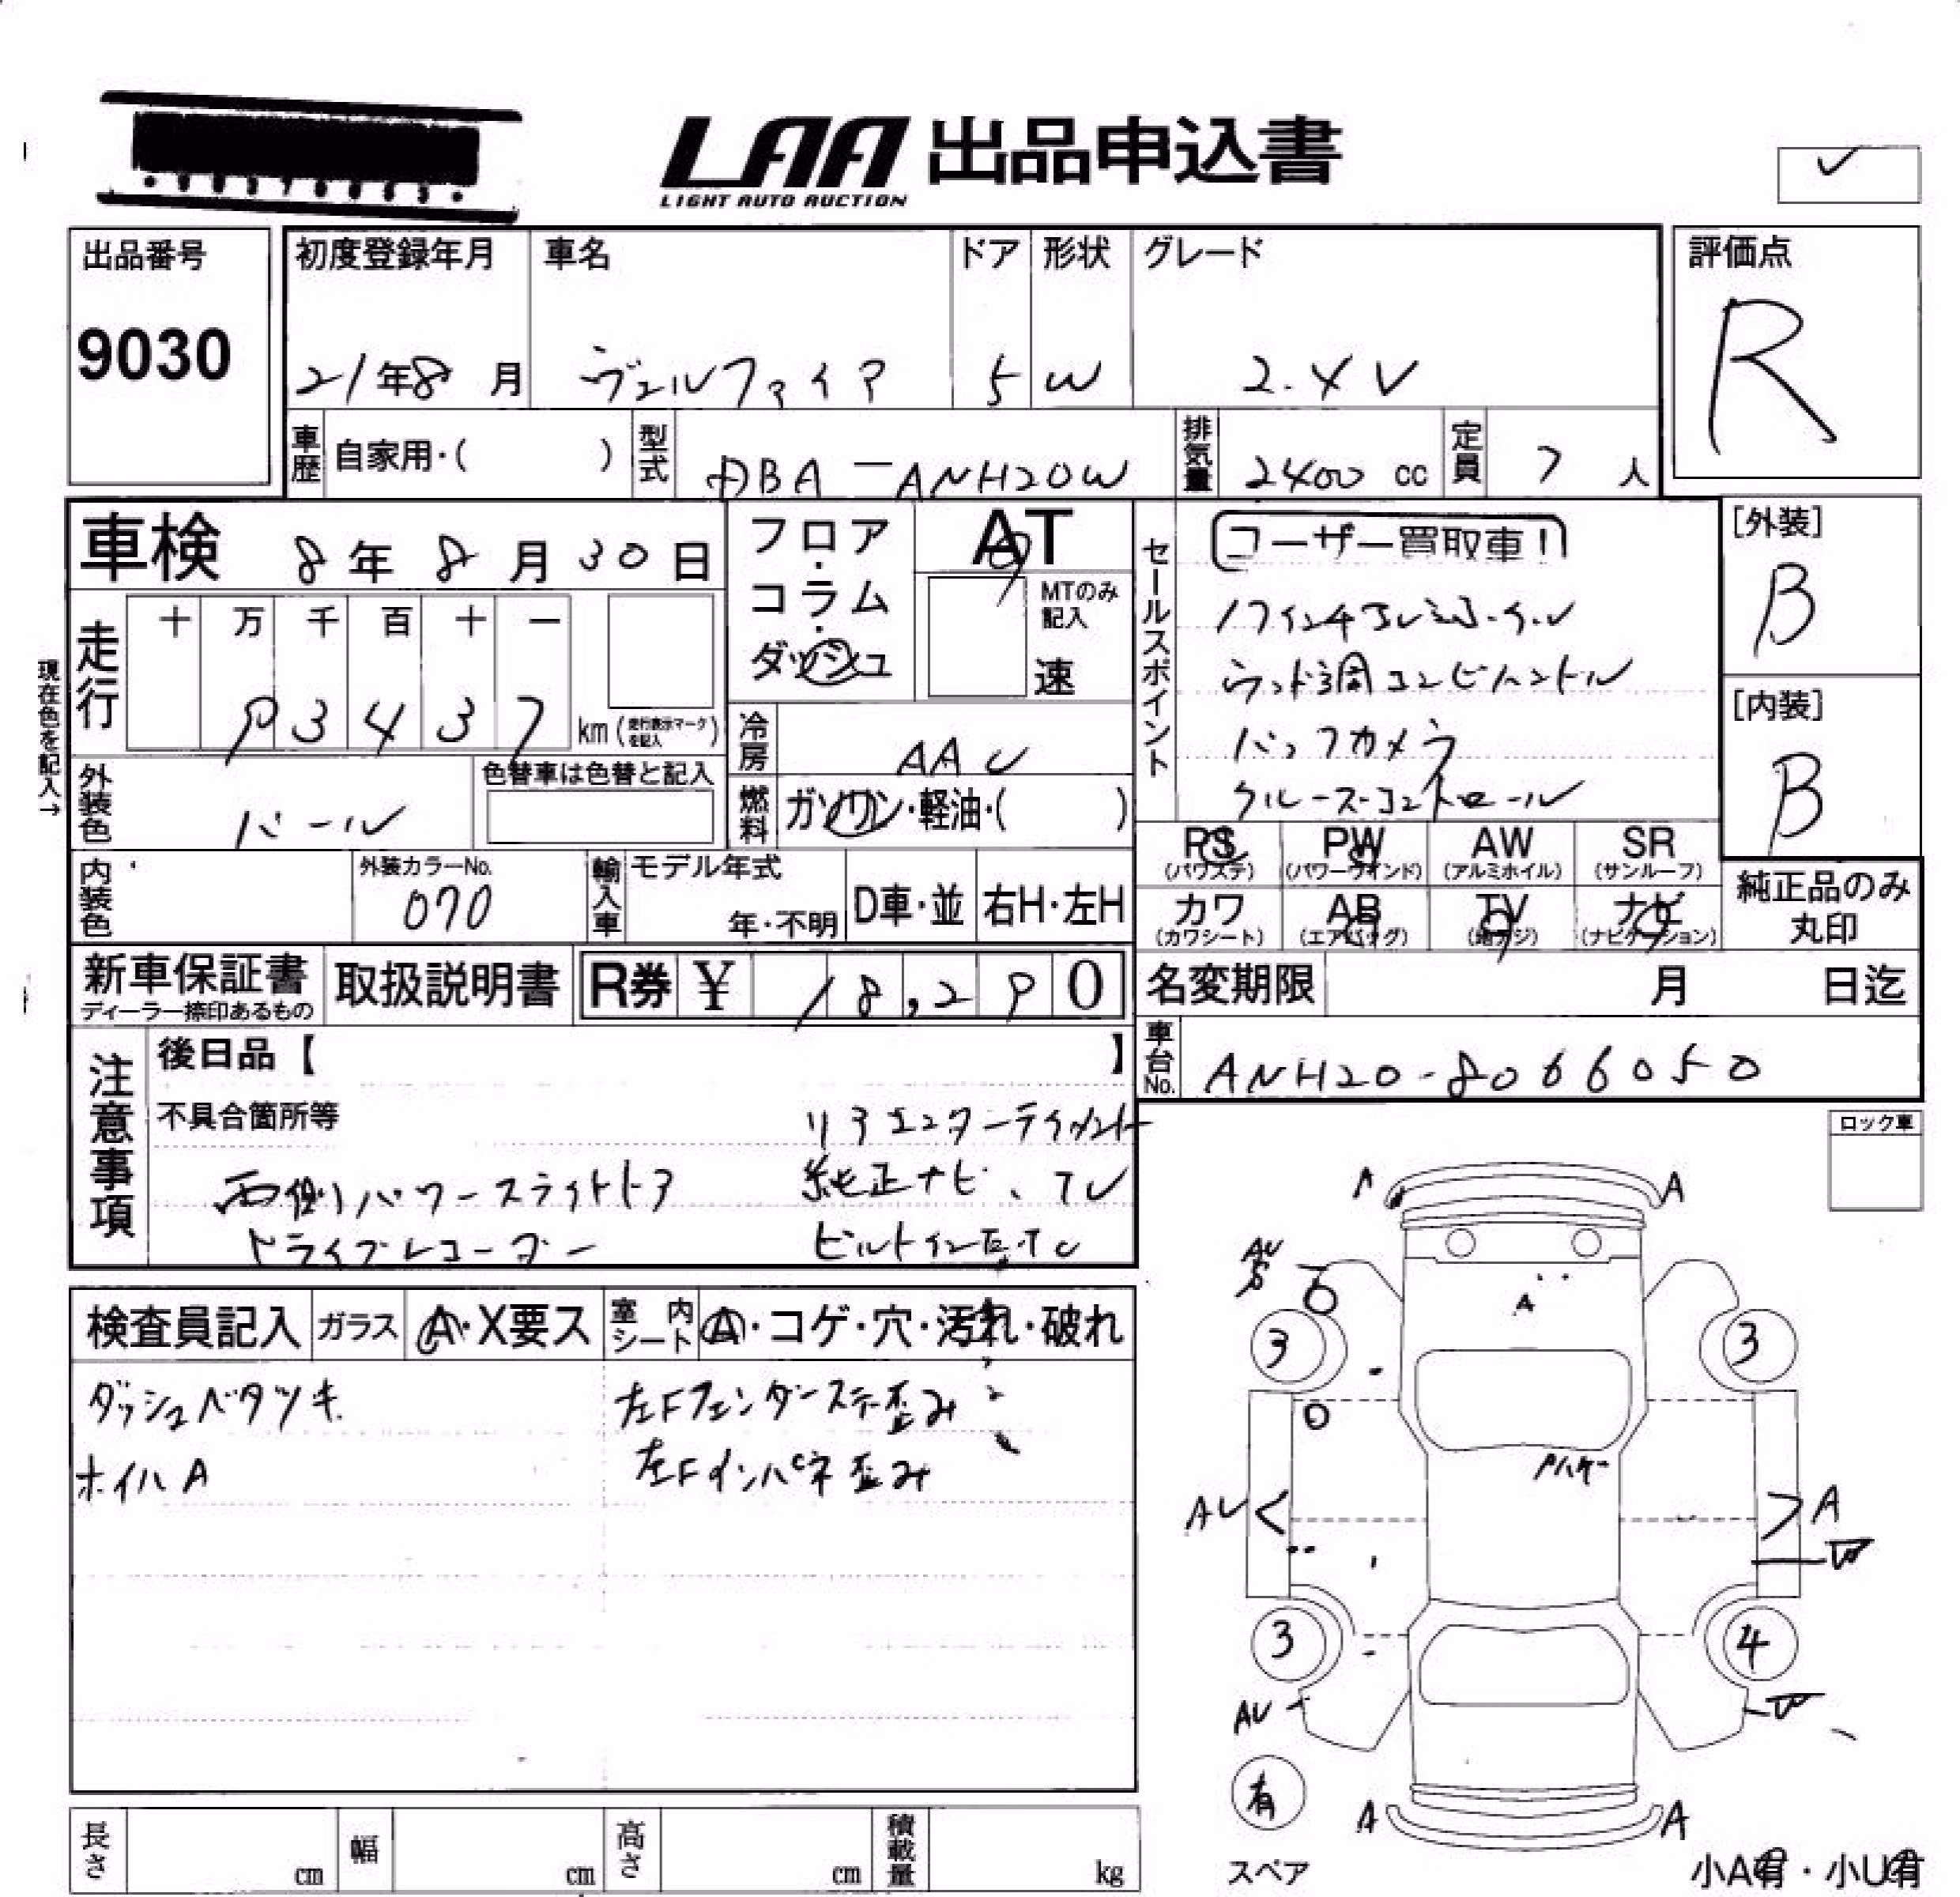 LAA 出品申込書
LIGHT AUTO AUCTION
出品番号
9030
初度登録年月
21年8月
車名
ヴェルファイア
ドア
5
形状
W
グレード
2.4V
評価点
R
車歴 自家用・( )
型式 DBA-ANH20W
排気量 2400 cc
定員 7 人
車検 8年8月30日
フロア・コラム・ダッシュ
AT
MTのみ記入
速
セールスポイント
ユーザー買取車!!
17インチアルミホイール
ウッド調コンビハンドル
バックカメラ
クルーズコントロール
[外装]
B
[内装]
B
現在色を記入→
走行
十 万 千 百 十 一
93437 km (走行表示マークを記入)
冷房 AAC
燃料 ガソリン・軽油・( )
外装色 パール
色替車は色替と記入
内装色
外装カラーNo.
070
輸入車
モデル年式
年・不明
D車・並
右H・左H
PS (パワステ)
PW (パワーウインド)
AW (アルミホイル)
SR (サンルーフ)
カワ (カワシート)
AB (エアバッグ)
TV (地デジ)
ナビ (ナビゲーション)
純正品のみ丸印
新車保証書
ディーラー捺印あるもの
取扱説明書
R券 ¥ 18,290
名変期限 月 日迄
車台No. ANH20-8066050
注意事項
後日品【 】
不具合箇所等
リアエンターテイメント
両側パワースライドドア
純正ナビ、TV
ドライブレコーダー
ビルトインETC
ロック車
検査員記入
ガラス A・X要ス
室内シート A・コゲ・穴・汚れ・破れ
ダッシュベタツキ
左Fフェンダーステー歪み
ホイハA
左Fインパネ歪み
A
A
AU
A
3
3
AU
A
3
4
AU
有
スペア
A
A
小A有・小U有
長さ cm
幅 cm
高さ cm
積載量 kg